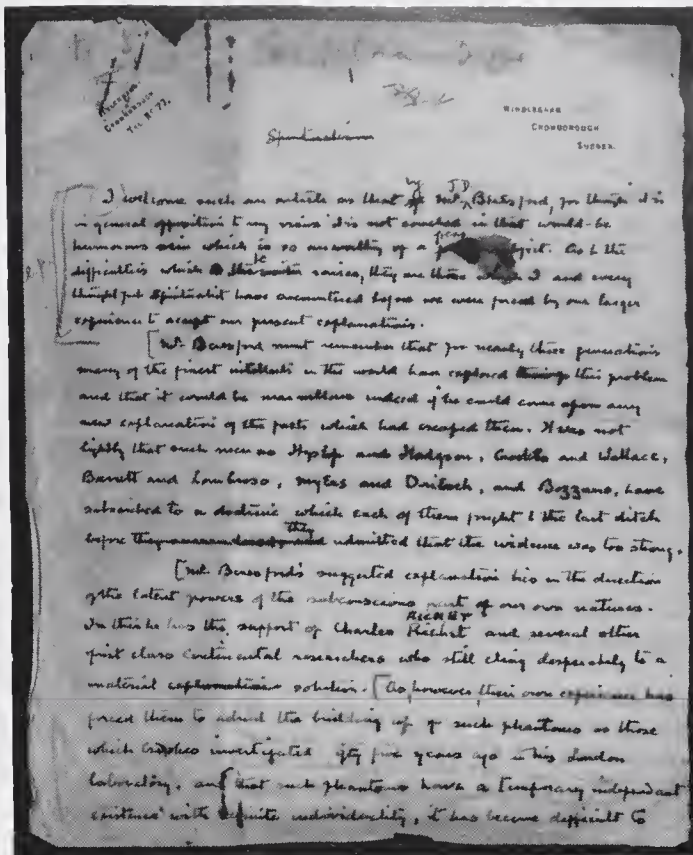 WINDLESHAM
CROWBOROUGH
SUSSEX.
CROWBOROUGH
TEL. No 77.
Spiritualism
by J.D.
I welcome such an article as that Mr. Beresford, for though it is
in general opposition to my views it is not couched in that would-be
humorous vein which is so unworthy of a great subject. As to the
difficulties which he raises, they are those which I and every
thoughtful Spiritualist have encountered before we were forced by our larger
experience to accept our present explanations.
[Mr. Beresford must remember that for nearly three generations
many of the finest intellects in the world have explored this problem
and that it would be marvellous indeed if he could come upon any
new explanation of the facts which had escaped them. It was not
lightly that such men as Hyslop and Hodgson, Crookes and Wallace,
Barrett and Lombroso, Myers and Driesch, and Bozzano, have
subscribed to a doctrine which each of them fought to the last ditch
before they admitted that the evidence was too strong.
[Mr. Beresford's suggested explanation lies in the direction
of the latent powers of the subconscious part of our own natures.
RICHET
In this he has the support of Charles Richet and several other
first class continental researchers who still cling desperately to a
material explanation solution. [As, however, their own experience has
forced them to admit the building up of such phantoms as those
which Crookes investigated fifty five years ago in his London
laboratory, and that such phantoms have a temporary independent
existence with definite individuality, it has become difficult to